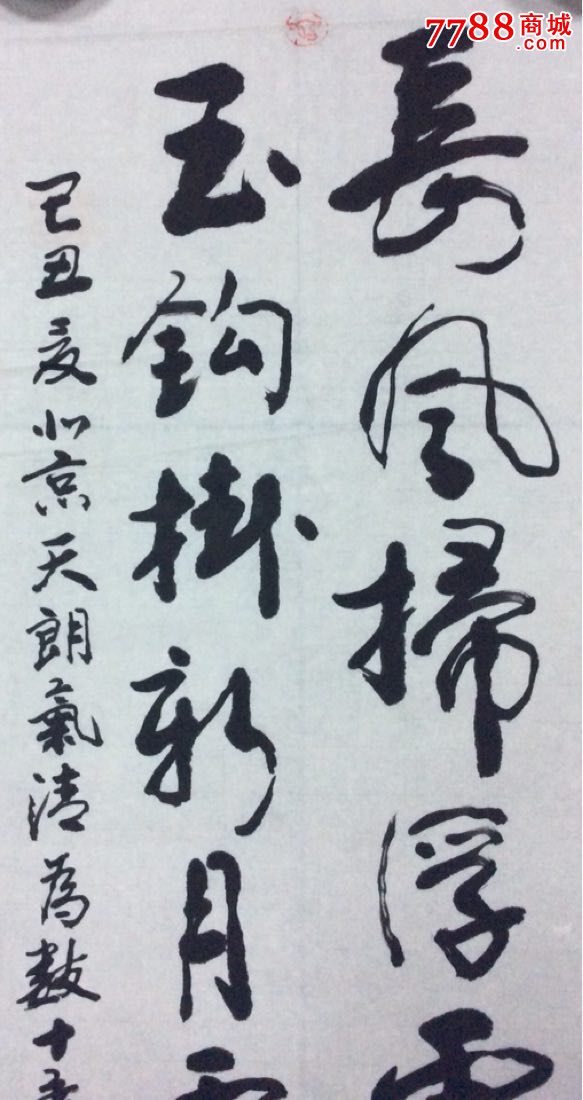 7788商城
.com
長風掃浮
玉鈎掛新月
己丑夏北京天朗氣清為數十